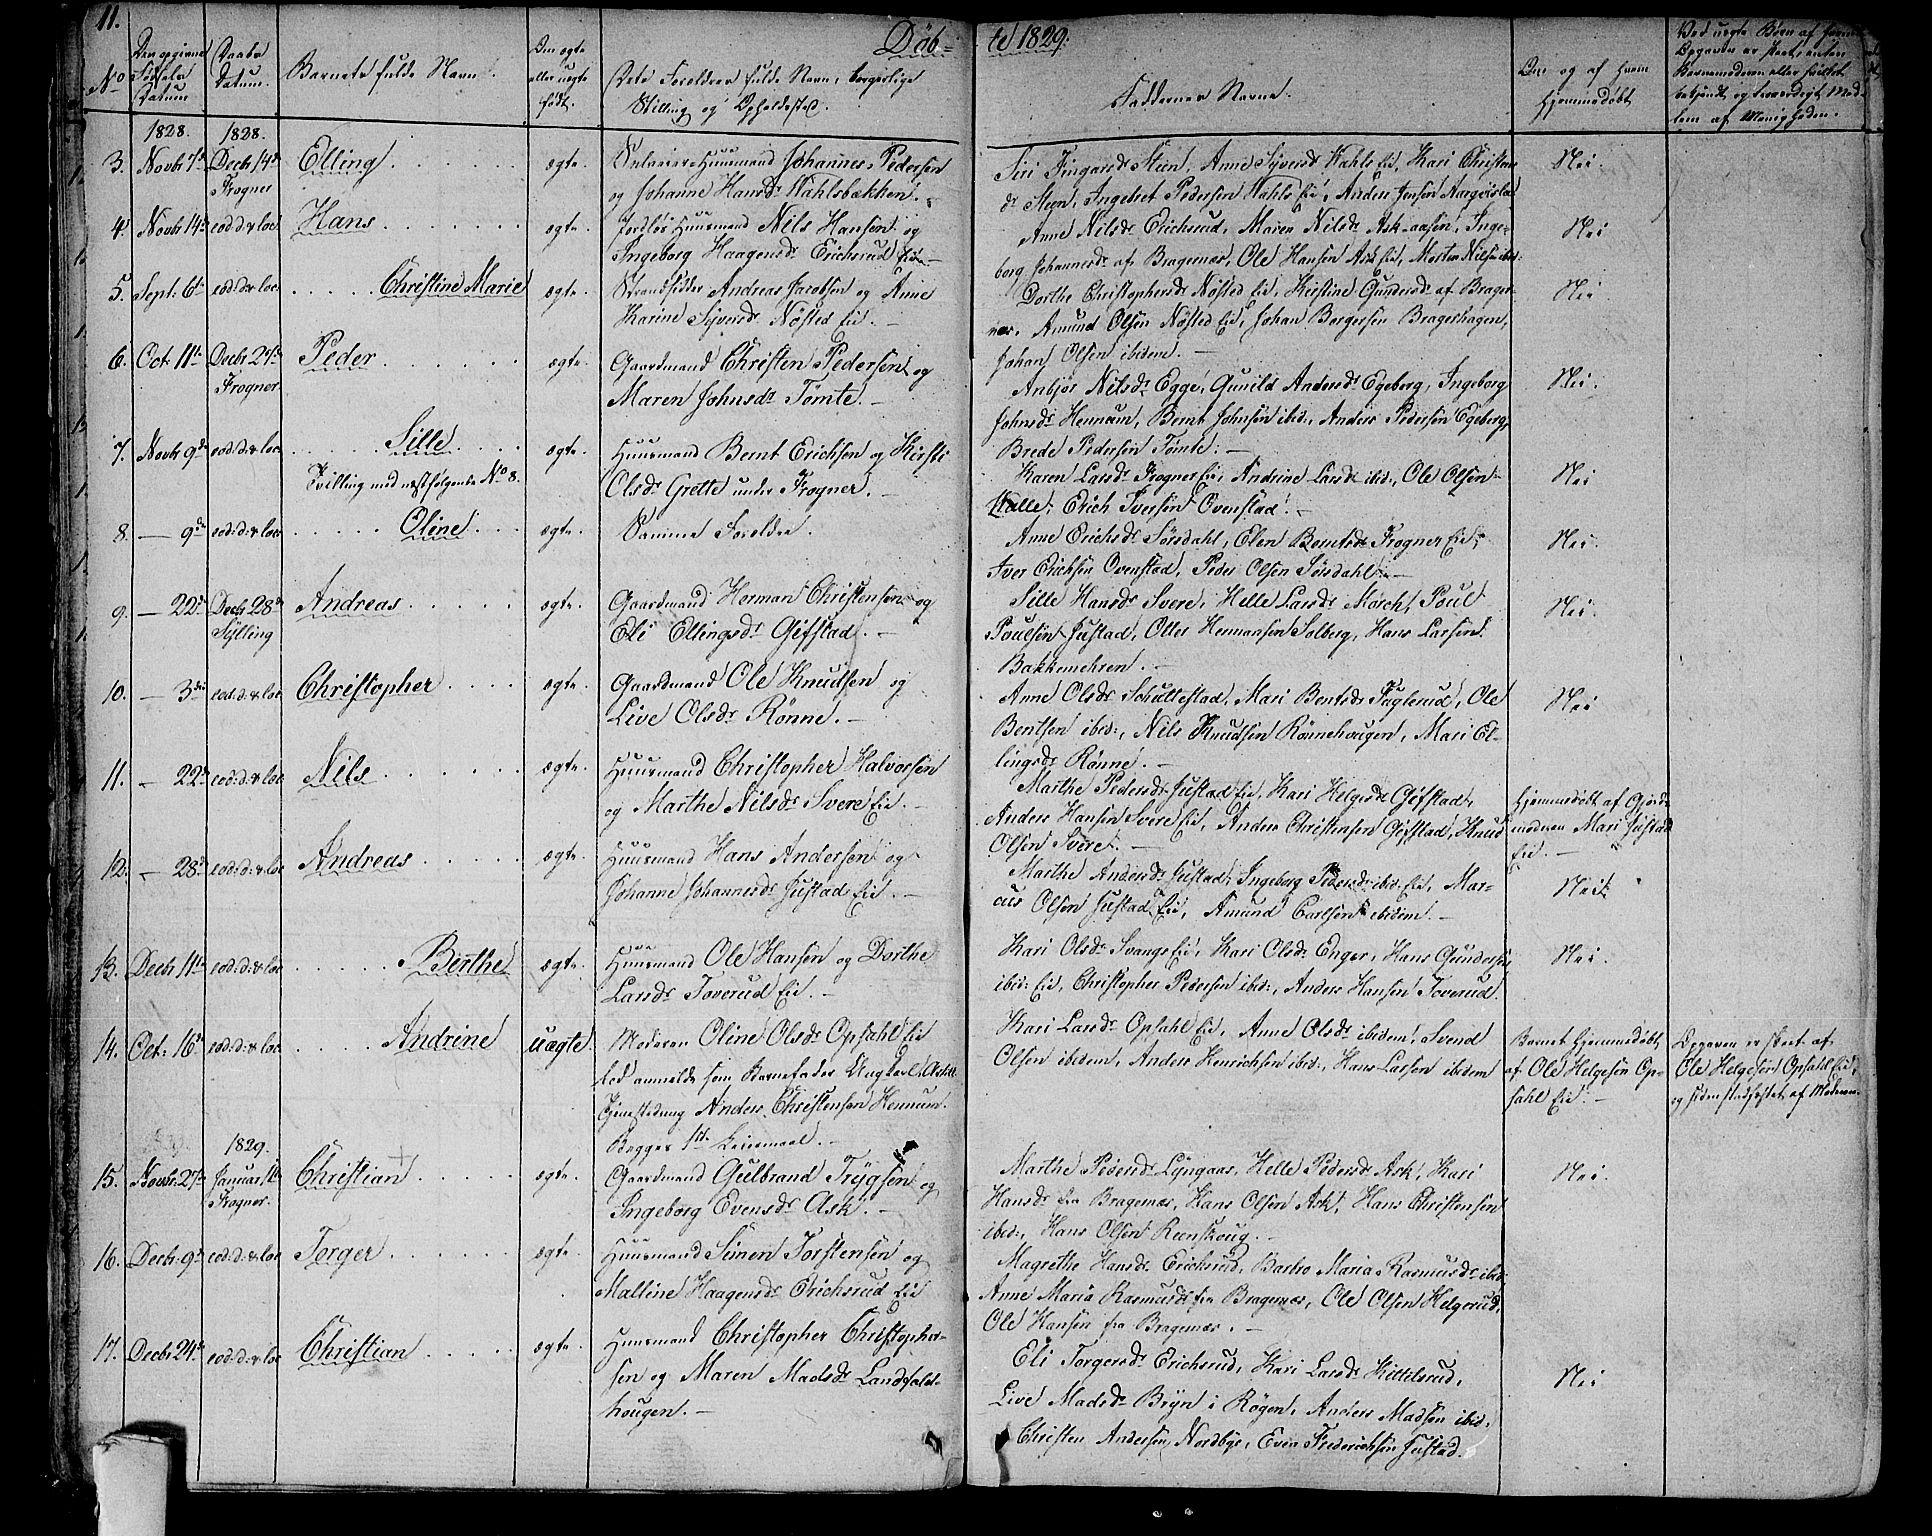 11.
Døb-
te 1829.
No
Den opgivne Fødsels Datum
Daabs Datum.
Barnets fulde Navn.
Den ægte eller uægte født.
Dets Forældres fulde Navn, borgerlige
Stilling og Opholdssted.
Faddernes Navne.
Om og af hvem
Hjemmedøbt
Ved uægte Børn af hvem
Opgaven er skeet, enten
Barnemoderen eller hvilket
bekjendt og troværdigt Med-
lem af Menigheden.
1828. 1828.
3. Novbr 7de Decbr 14de Frogner Elling ægte.
Huusmand Johannes Pedersen
og Johanne Hansdr Wahlsbækken.
Siri Fingarsdr Steen, Anne Syversdr Wahls Eie, Kari Christens
dr Steen, Ingebret Pedersen Wahls Eie, Anders Jensen
Nei.
4. Novbr 14de eod: d: & loc Hans ægte.
Jordløs Huusmand Nils Hansen og
Ingeborg Haagensdr Erichsrud Eie
Anne Nilsdr Erichsrud, Maren Nilsdr Ask-aasen, Inge-
borg Johannesdr af Bragenæs, Ole Hansen Ask Eie, Morten Nilsen ibid:
Nei
5. Septr 6te eod: d: & loc Christine Marie ægte.
Strandsidder Andreas Jacobsen og Anne
Karine Syversdr Nøsted Eie. -
Dorthe Christophersdr Nøsted Eie, Kristine Gundersdr af Brage-
næs, Amund Olsen Nøsted Eie, Johan Borgersen Brageshagen,
Johan Olsen ibidem. -
Nei
6. Oct 11te Decbr 27de Frogner Peder ægte.
Gaardmand Christen Pedersen og
Maren Johnsdr Tømte. -
Anbjør Nilsdr Egge, Gunild Andersdr Egeberg, Ingeborg
Johnsdr Hennum, Bernt Johnsen ibid:, Anders Pedersen Egeberg,
Brede Pedersen Tømte. -
Nei.
7. Novbr 9de eod: d: & loc Sille ægte.
Tvilling med næstfølgende No 8.
Huusmand Bernt Erichsen og Kirsti
Olsdr Grette under Frogner. -
Karen Larsdr Frogner Eie, Andrine Larsdr ibid:, Ole Olsen
Valle, Erich Iversen Ovenstad. -
Nei
8. - 9de eod: d: & loc Oline ægte.
Samme Forældre.
Anne Erichsdr Sørsdahl, Elen Berntsdr Frogner Eie,
Iver Erichsen Ovenstad, Peder Olsen Sørsdahl. -
Nei.
9. - 22de Decbr 28de Sylling Andreas ægte.
Gaardmand Herman Christensen og
Eli Ellingsdr Gifstad. -
Sille Hansdr Svere, Helle Larsdr Mørch, Poul
Poulsen Justad, Oller Hermansen Solberg, Hans Larsen
Bakkemehren. -
Nei.
10. - 3die eod: d: & loc Christopher ægte.
Gaardmand Ole Knudsen og
Live Olsdr Rønne. -
Anne Olsdr Schullestad, Mari Bentsdr Fuglerud, Ole
Bentsen ibid:, Nils Knudsen Rønnehougen, Mari El-
lingsdr Rønne. -
Nei
11. - 22de eod: d: & loc Nils ægte.
Huusmand Christopher Halvorsen
og Marthe Nilsdr Svere Eie. -
Marthe Pedersdr Justad Eie, Kari Helgesdr Gifstad,
Anders Hansen Svere Eie, Anders Christensen Gifstad, Knud
Olsen Svere. -
Hjemmedøbt af Gjord-
moderen Mari Justad
Eie. -
12. - 28de eod: d: & loc Andreas ægte.
Huusmand Hans Andersen og
Johanne Johannesdr Justad Eie. -
Marthe Andersdr Justad, Ingeborg Pedersdr ibid: Eie, Mar-
cus Olsen Justad Eie, Amund Carlsen ibidem. -
Nei
13. Decbr 11te eod: d: & loc Berthe ægte.
Huusmand Ole Hansen og Dorthe
Larsdr Toverud Eie. -
Kari Olsdr Svangs Eie, Kari Olsdr Enger, Hans Gundersen
ibid: Eie, Christopher Pedersen ibid:, Anders Hansen Toverud.
Nei.
14. Oct: 16de eod: d: & loc Andrine uægte.
Moderen Oline Olsdr Opsahl Eie
lod anmelde som Barnefader Ungkarl,
Anders Christensen Hennum.
Begges 1ste Leiermaal. -
Kari Larsdr Opsahl Eie, Anne Olsdr ibidem, Svend
Olsen ibidem, Anders Henrichsen ibid:, Hans Larsen ibidem
Barnet hjemmedøbt
af Ole Helgesen Op-
sahl Eie. -
Opgaven er skeet af
Ole Helgesen Opsahl Eie,
og siden stadfæstet af Moderen.
1829.
15. Novbr 27de Januar 1te Frogner. Christian ægte.
Gaardmand Gulbrand Trygsen og
Ingeborg Evensdr Ask. -
Marthe Pedersdr Lyngaas, Helle Pedersdr Ask, Kari
Hansdr fra Bragenæs, Hans Olsen Ask, Hans Christensen
ibid:, Hans Olsen Reenskoug. -
Nei.
16. Decbr 9de eod: d: & loc Torger ægte.
Huusmand Simen Torstensen og
Malline Haagensdr Erichsrud Eie
Magrethe Hansdr Erichsrud, Barbro Maria Rasmusdr ibid:
Anne Maria Rasmusdr fra Bragenæs, Ole Olsen Helgerud,
Ole Hansen fra Bragenæs. -
17. Decbr 24de eod: d: & loc Christian ægte.
Huusmand Christopher Christopher-
sen og Maren Madsdr Landfald-
hougen. -
Eli Torgersdr Erichsrud, Kari Larsdr Kittelsrud,
Live Madsdr Bryn i Røgen, Anders Madsen ibid:
Christen Andersen Nordbye, Even Frederichsen Justad.
Nei